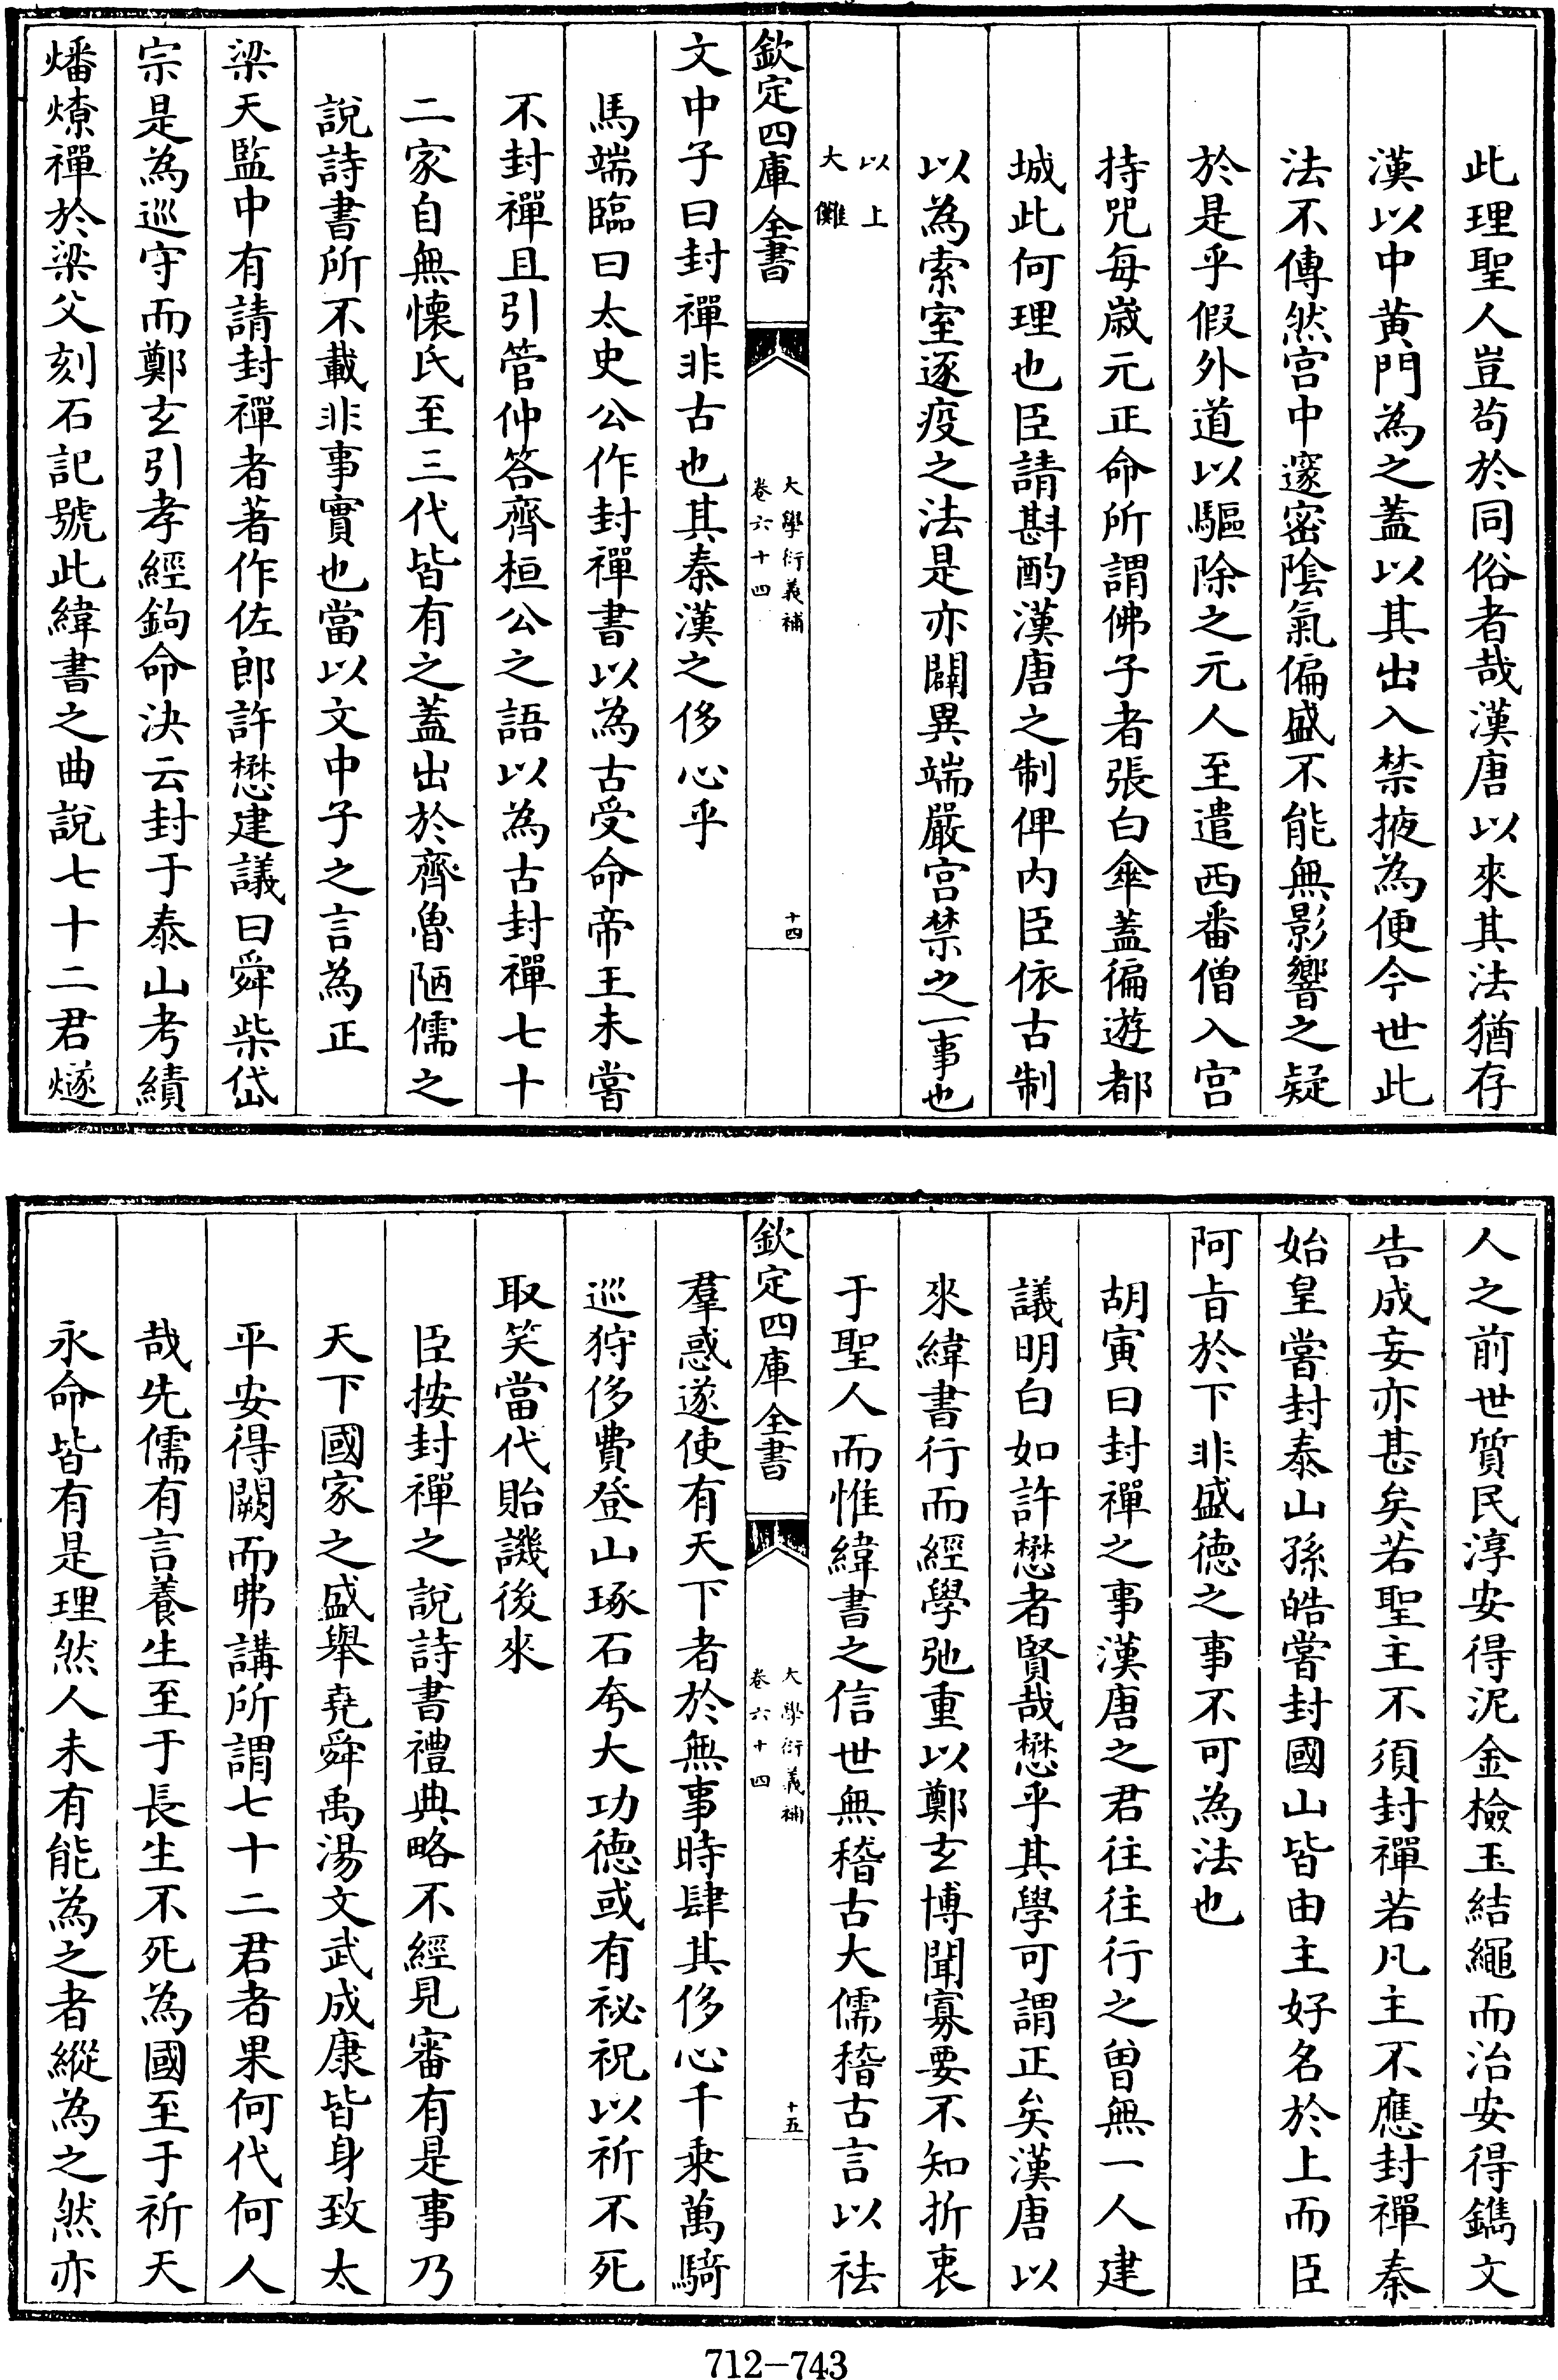 此理聖人豈苟於同俗者哉漢唐以來其法猶存
漢以中黄門為之蓋以其出入禁掖為便今世此
法不傳然宫中邃密隂氣偏盛不能無影響之疑
於是乎假外道以驅除之元人至遣西番僧入宫
持咒每嵗元正命所謂佛子者張白傘蓋徧遊都
城此何理也臣請斟酌漢唐之制俾内臣依古制
以為索室逐疫之法是亦闢異端嚴宫禁之一事也
以上
大儺
欽定四庫全書
大學衍義補
卷六十四
十四
文中子曰封禪非古也其秦漢之侈心乎
馬端臨曰太史公作封禪書以為古受命帝王未嘗
不封禪且引管仲答齊桓公之語以為古封禪七十
二家自無懷氏至三代皆有之蓋出於齊魯陋儒之
說詩書所不載非事實也當以文中子之言為正
梁天監中有請封禪者著作佐郎許懋建議曰舜柴岱
宗是為巡守而鄭玄引孝經鉤命決云封于泰山考績
燔燎禪於梁父刻石記號此緯書之曲說七十二君燧
人之前世質民淳安得泥金檢玉結繩而治安得鐫文
告成妄亦甚矣若聖主不須封禪若凡主不應封禪秦
始皇嘗封泰山孫皓嘗封國山皆由主好名於上而臣
阿㫖於下非盛徳之事不可為法也
胡寅曰封禪之事漢唐之君往往行之曽無一人建
議明白如許懋者賢哉懋乎其學可謂正矣漢唐以
來緯書行而經學弛重以鄭玄博聞寡要不知折衷
于聖人而惟緯書之信世無稽古大儒稽古言以祛
欽定四庫全書
大學衍義補
卷六十四
十五
羣惑遂使有天下者於無事時肆其侈心千乘萬騎
巡狩侈費登山琢石夸大功徳或有祕祝以祈不死
取笑當代貽譏後來
臣按封禪之說詩書禮典略不經見審有是事乃
天下國家之盛舉堯舜禹湯文武成康皆身致太
平安得闕而弗講所謂七十二君者果何代何人
哉先儒有言養生至于長生不死為國至于祈天
永命皆有是理然人未有能為之者縱為之然亦
712-743